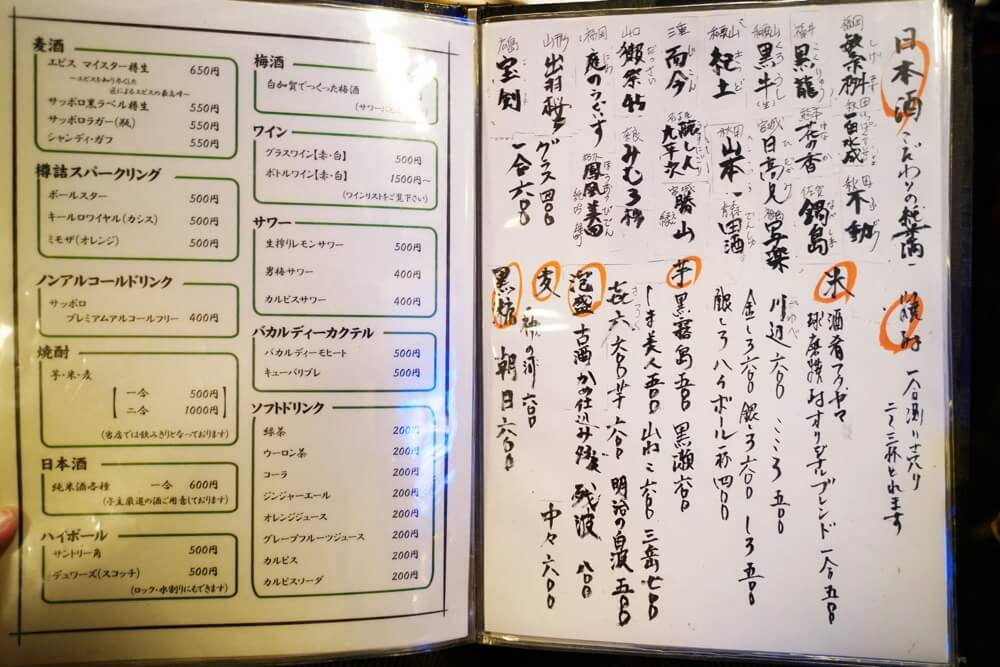 麦酒
エビス マイスター樽生 650円
～エビスを知り尽くした
匠によるエビスの最高峰～
サッポロ黒ラベル樽生 550円
サッポロラガー(瓶) 550円
シャンディ・ガフ 550円
樽詰スパークリング
ポールスター 500円
キールロワイヤル(カシス) 500円
ミモザ(オレンジ) 500円
ノンアルコールドリンク
サッポロ
プレミアムアルコールフリー 400円
焼酎
芋・米・麦
一合 500円
二合 1000円
(当店では飲みきりとなっております)
日本酒
純米酒各種 一合 600円
(亭主厳選の酒ご用意しております)
ハイボール
サントリー角 500円
デュワーズ(スコッチ) 500円
(ロック・水割りにもできます)
梅酒
白加賀でつくった梅酒
(サワー
ワイン
グラスワイン【赤・白】 500円
ボトルワイン【赤・白】 1500円～
(ワインリストをご覧下さい)
サワー
生搾りレモンサワー 500円
男梅サワー 400円
カルピスサワー 400円
バカルディーカクテル
バカルディーモヒート 500円
キューバリブレ 500円
ソフトドリンク
緑茶 200円
ウーロン茶 200円
コーラ 200円
ジンジャーエール 200円
オレンジジュース 200円
グレープフルーツジュース 200円
カルピス 200円
カルピスソーダ 200円
日本酒 こだわりの純米酒
福岡 繁桝 しげます
秋田 一白水成
秋田 不動 ふどう
福井 黒龍 こくりゅう
熊本 花の香
佐賀 鍋島 なべしま
和歌山 黒牛 くろうし
宮城 日高見 ひたかみ
福島 写楽
和歌山 紀土 きっど
秋田 山本
田酒 でんしゅ
三重 而今 じこん
醸し人九平次
勝山
山口 獺祭 だっさい
奈良 みむろ杉
福岡 庭のうぐいす
栃木 鳳凰美田 ほうおうびでん
山形 出羽桜
グラス 四〇〇
広島 宝剣
一合 六〇〇
焼酎 一合測り売り
二～三杯とれます
米 酒肴フクヤマ
球磨焼酎オリジナルブレンド 一合 五〇〇
川辺 六〇〇 こころ 五〇〇
金しろ 六〇〇 銀しろ 六〇〇 しろ 五〇〇
銀しろハイボール 一杯 四〇〇
芋 黒霧島 五〇〇 黒瀬 六〇〇
しま美人 五〇〇 山ねこ 六〇〇 三岳 七〇〇
㐂六 六〇〇 明治の正中 六〇〇 白波 五〇〇
泡盛 古酒かめ仕込み残波 残波 八〇〇
麦 六〇〇 中々 六〇〇
黒糖 朝日 六〇〇